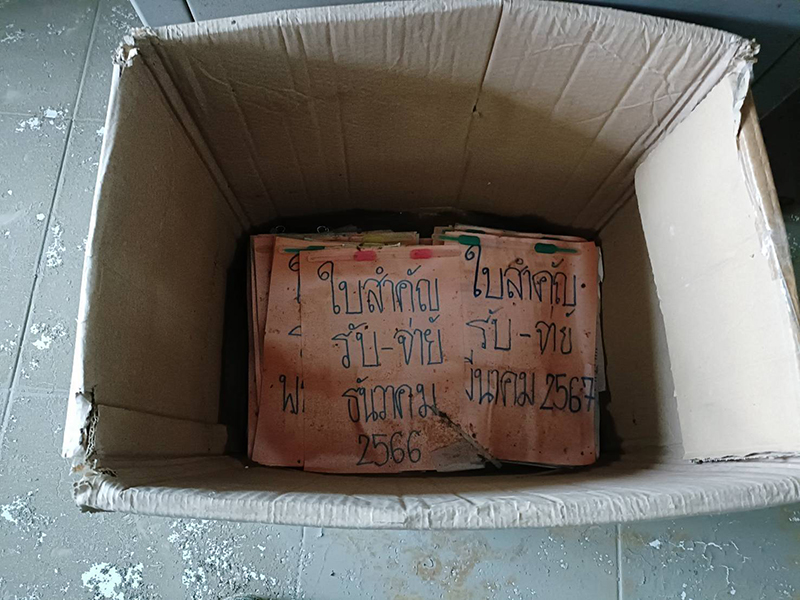 ใบสำคัญ
รับ-จ่าย
ธันวาคม
2566
ใบสำคัญ
รับ-จ่าย
มีนาคม 2567